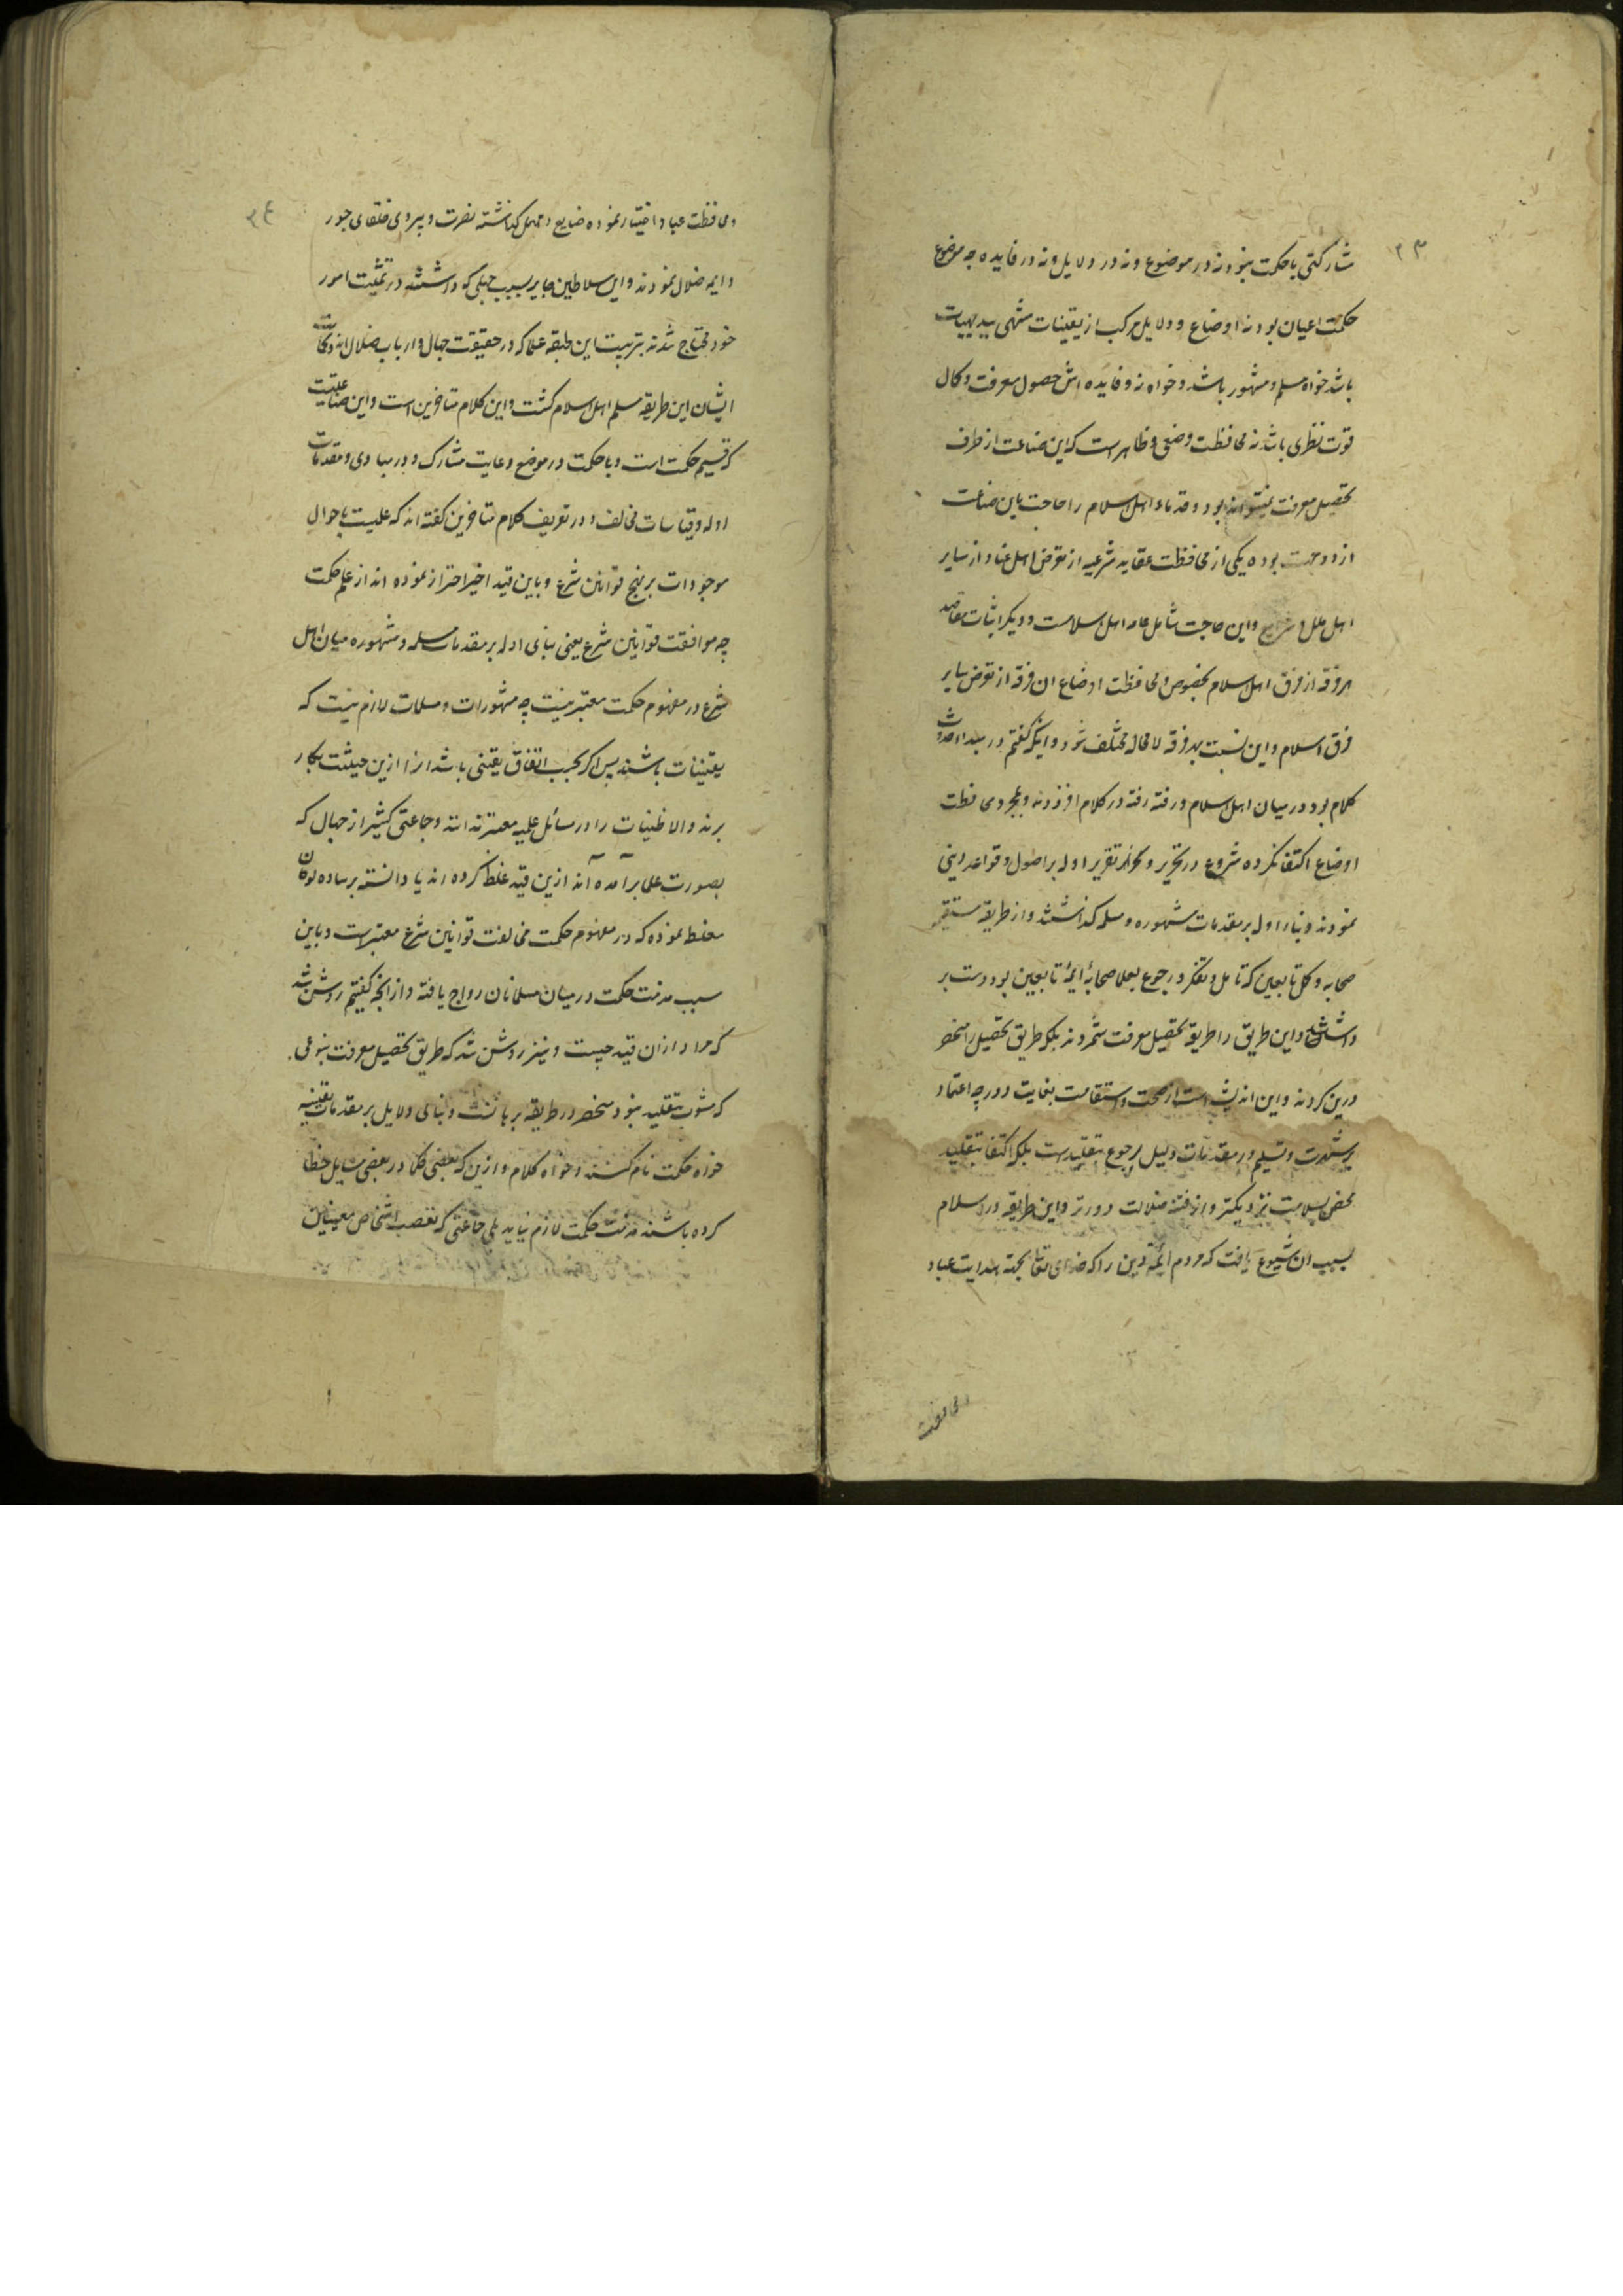 ۲۳
مشارکتی با حکمت نبود نه در موضوع و نه در دلایل و نه در فایده چه موضوع
حکمت اعیان بود نه اوضاع و دلایل مرکب از یقینیات منتهی ببدیهیات
باشد خواه مسلم و مشهور باشد و خواه نه و فایده اش حصول معرفت و کمال
قوت نظری باشد نه محافظت وضعی و ظاهر است که این صناعت از طرف
تحصیل معرفت نمیتواند بود و قدماء اهل اسلام را حاجت باین صناعت
از دو جهت بوده یکی از محافظت عقاید شرعیه از تعرض اهل عناد از سایر
اهل ملل و شرایع و این حاجت شامل عامه اهل اسلامست و دیگر اثبات مقاصد
هر فرقه از فرق اهل اسلام بخصوص و محافظت اوضاع ان فرقه از تعرض سایر
فرق اسلام و این نسبت بهر فرقه لا محاله مختلف شود و اینکه گفتم در مبداء حدوث
کلام بود در میان اهل اسلام و رفته رفته در کلام افزودند و بمجرد محافظت
اوضاع اکتفا نکرده شروع در تحریر و تقریر ادله بر اصول و قواعد دینی
نمودند و بناء ادله بر مقدمات مشهوره و مسلمه گذاشتند و از طریقه مستقیمه
صحابه و کل تابعین که تامل و تفکر و رجوع بعلما صحابه ایمهٔ تابعین بود دست بر
داشتند و این طریق را طریقه تحصیل معرفت شمردند بلکه طریق تحصیل را منحصر
درین کردند و این اندیشه است از صحت و استقامت بغایت دور چه اعتماد
بر شهرت و تسلیم در مقدمات دلیل رجوع بتقلیدست بلکه اکتفا بتقلید
محض بسلامت نزدیکتر و از فتنه ضلالت دورتر و این طریقه در اسلام
بسبب ان شیوع یافت که مردم ایمهٔ دین را که خدای تعالی بجهة هدایت عباد
و محافظت
۲۴
و محافظت عباد اختیار نموده ضایع و مهمل گذاشته نصرت و پیروی خلفای جور
و ایمه ضلال نمودند و این سلاطین جایر بسبب جهلی که داشتند در تمشیت امور
خود محتاج شدند بتربیت این طبقه علما که در حقیقت جهال و ارباب ضلال اند
ایشان این طریقه مسلم اهل اسلام گشت و این کلام متاخرین است و این صناعتیست
که قسیم حکمت است و با حکمت در موضع و غایت مشارک و در مبادی و مقدمات
ادله و قیاسات مخالف و در تعریف کلام متاخرین گفته اند که علمیست باحوال
موجودات بر نهج قوانین شرع و باین قید اخیر احتراز نموده اند از علم حکمت
چه موافقت قوانین شرع یعنی بنای ادله بر مقدمات مسلمه و مشهوره میان اهل
شرع در مفهوم حکمت معتبر نیست چه مشهورات و مسلمات لازم نیست که
یقینیات باشند پس اگر بحسب اتفاق یقینی باشد انرا ازین حیثیت بکار
برند و الا ظنیات را در مسائل علمیه معتبر ندانند و جماعتی کثیر از جهال که
بصورت علما برآمده آند ازین قید غلط کرده اند یا دانسته بر ساده لوحان
مغلطه نموده که در مفهوم حکمت مخالفت قوانین شرع معتبرست و باین
سبب مذمت حکمت در میان مسلمانان رواج یافته و از انچه گفتیم روشن شد
که مراد ازان قید چیست و نیز روشن شد که طریق تحصیل معرفت بنوعی
که مشوب بتقلید نبود منحصر در طریقه برهانست و بنای دلایل بر مقدمات یقینیه
خواه حکمت نام کنند و خواه کلام و ازین که بعضی حکما در بعضی مسایل خطا
کرده باشند مذمت حکمت لازم نیاید بلی جماعتی که تعصب اشخاص معینین